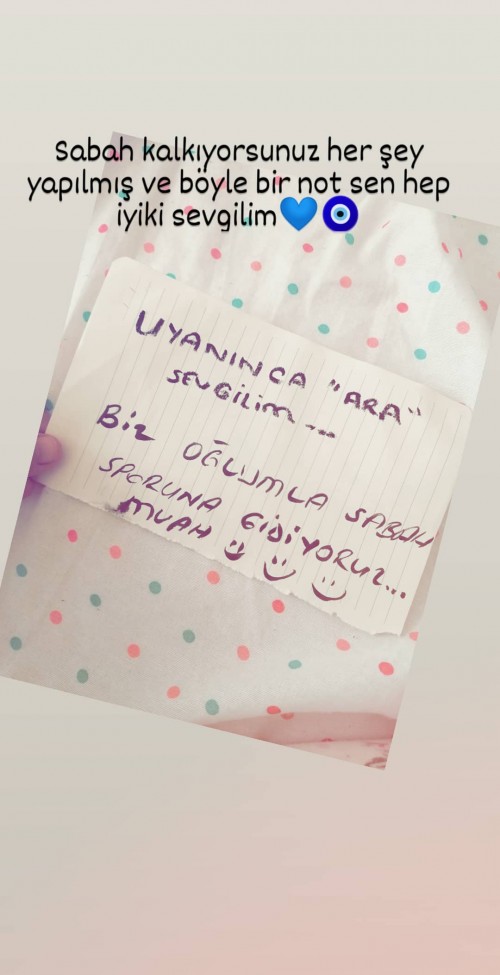 Sabah kalkıyorsunuz her şey
yapılmış ve böyle bir not sen hep
iyiki sevgilim💙🧿
UYANINCA "ARA"
SEVGİLİM...
BİZ OĞLUMLA SABAH
SPORUNA GİDİYORUZ...
MUAH